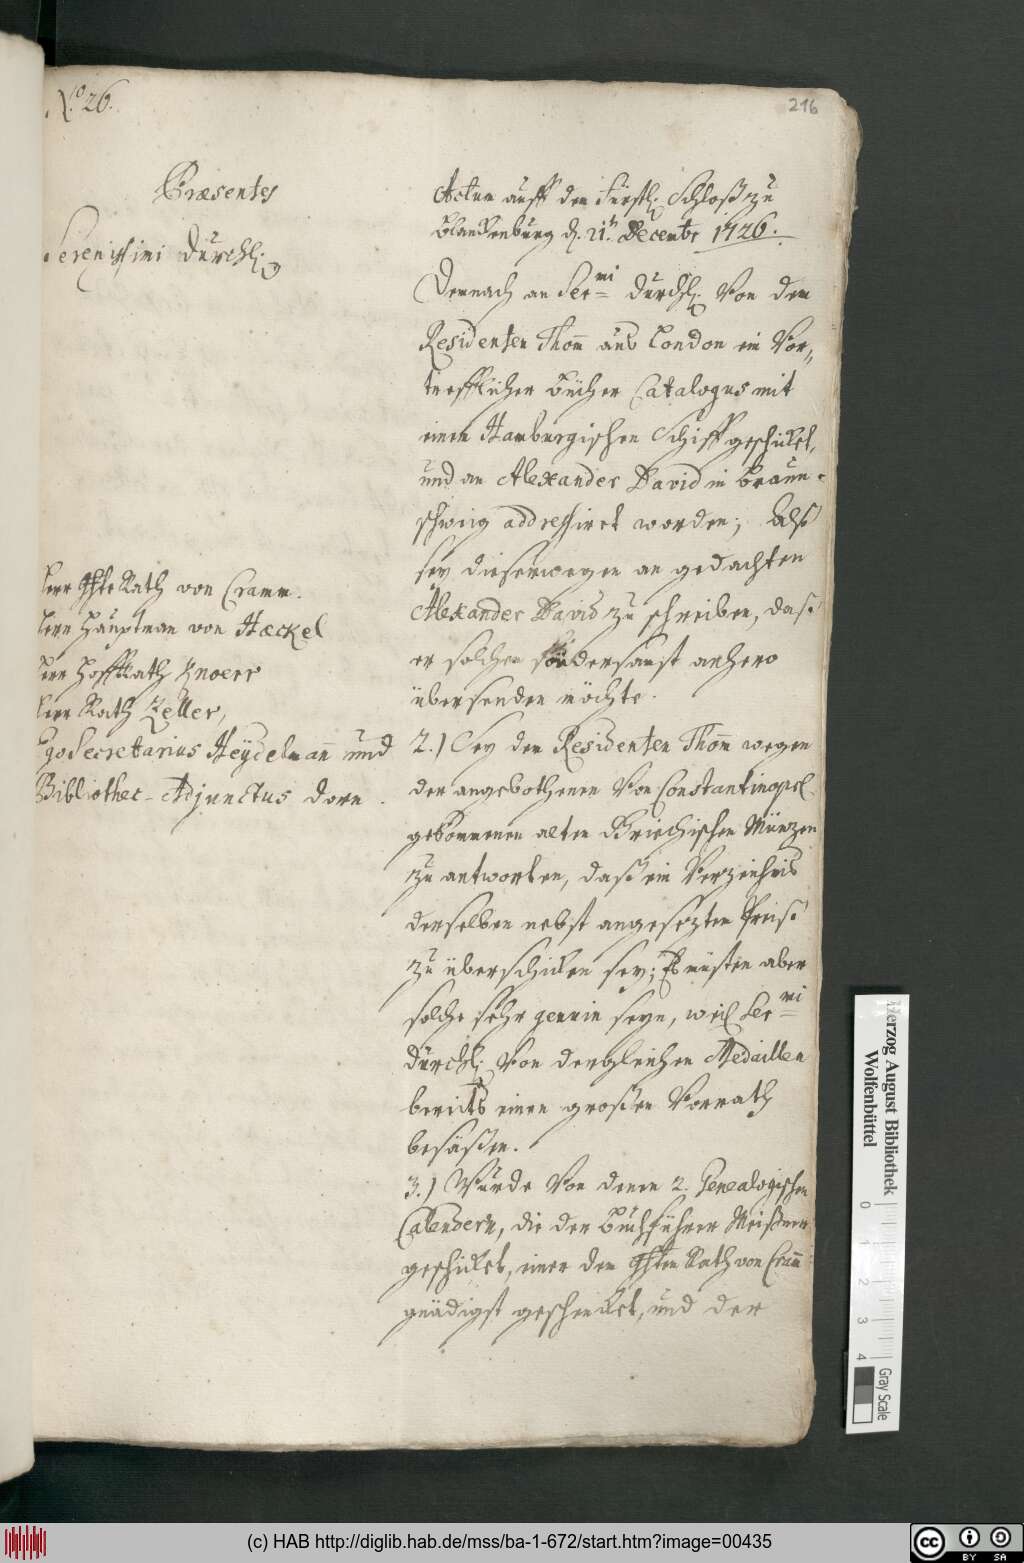 N.o 26.
216
Præsentes
Serenissimi Durchl.
Herr Gehte Rath von Cramm.
Herr Hauptman von Hæckel
Herr Hoffrath Knoerr
Herr Rath Zeller,
Ego Secretarius Heÿdelmañ und
Bibliothec-Adjunctus dorn.
Actum auff dem Fürstl. Schloß zu
Blanckenburg d. 21.t Decembr 1726.
Demnach an Ser.mi Durchl. Von dem
Residenten Thom̄ aus London ein Vor-
trefflicher Bücher Catalogus mit
einem Hamburgischen Schiff geschickt,
und an Alexander David in Braun-
schweig addressiret worden; Alß
seÿ dieserwegen an gedachten
Alexander David zu schreiben, daß
er solchen fördersamst anhero
übersenden möchte.
2.) Seÿ dem Residenten Thom̄ wegen
der angebothenen Von Constantinopel
gekommenen alten Griechischen Müntzen
zu antworten, daß ein Verzeichnis
derselben nebst angesezten Preiß
zu überschicken seÿ; Es müsten aber
solche sehr genuin seyn, weil Ser.mi
Durchl. Von dergleichen Medaillen
bereits einen großen Vorrath
besäßen.
3.) Wurde Von denen 2. Genealogischen
Calendern, die der Buchführer Meißner
geschicket, einer dem Ghten Rath von Cram̄
gnädigst geschencket, und der
Herzog August Bibliothek
Wolfenbüttel
0 1 2 3 4
Gray Scale
(c) HAB http://diglib.hab.de/mss/ba-1-672/start.htm?image=00435
cc BY SA